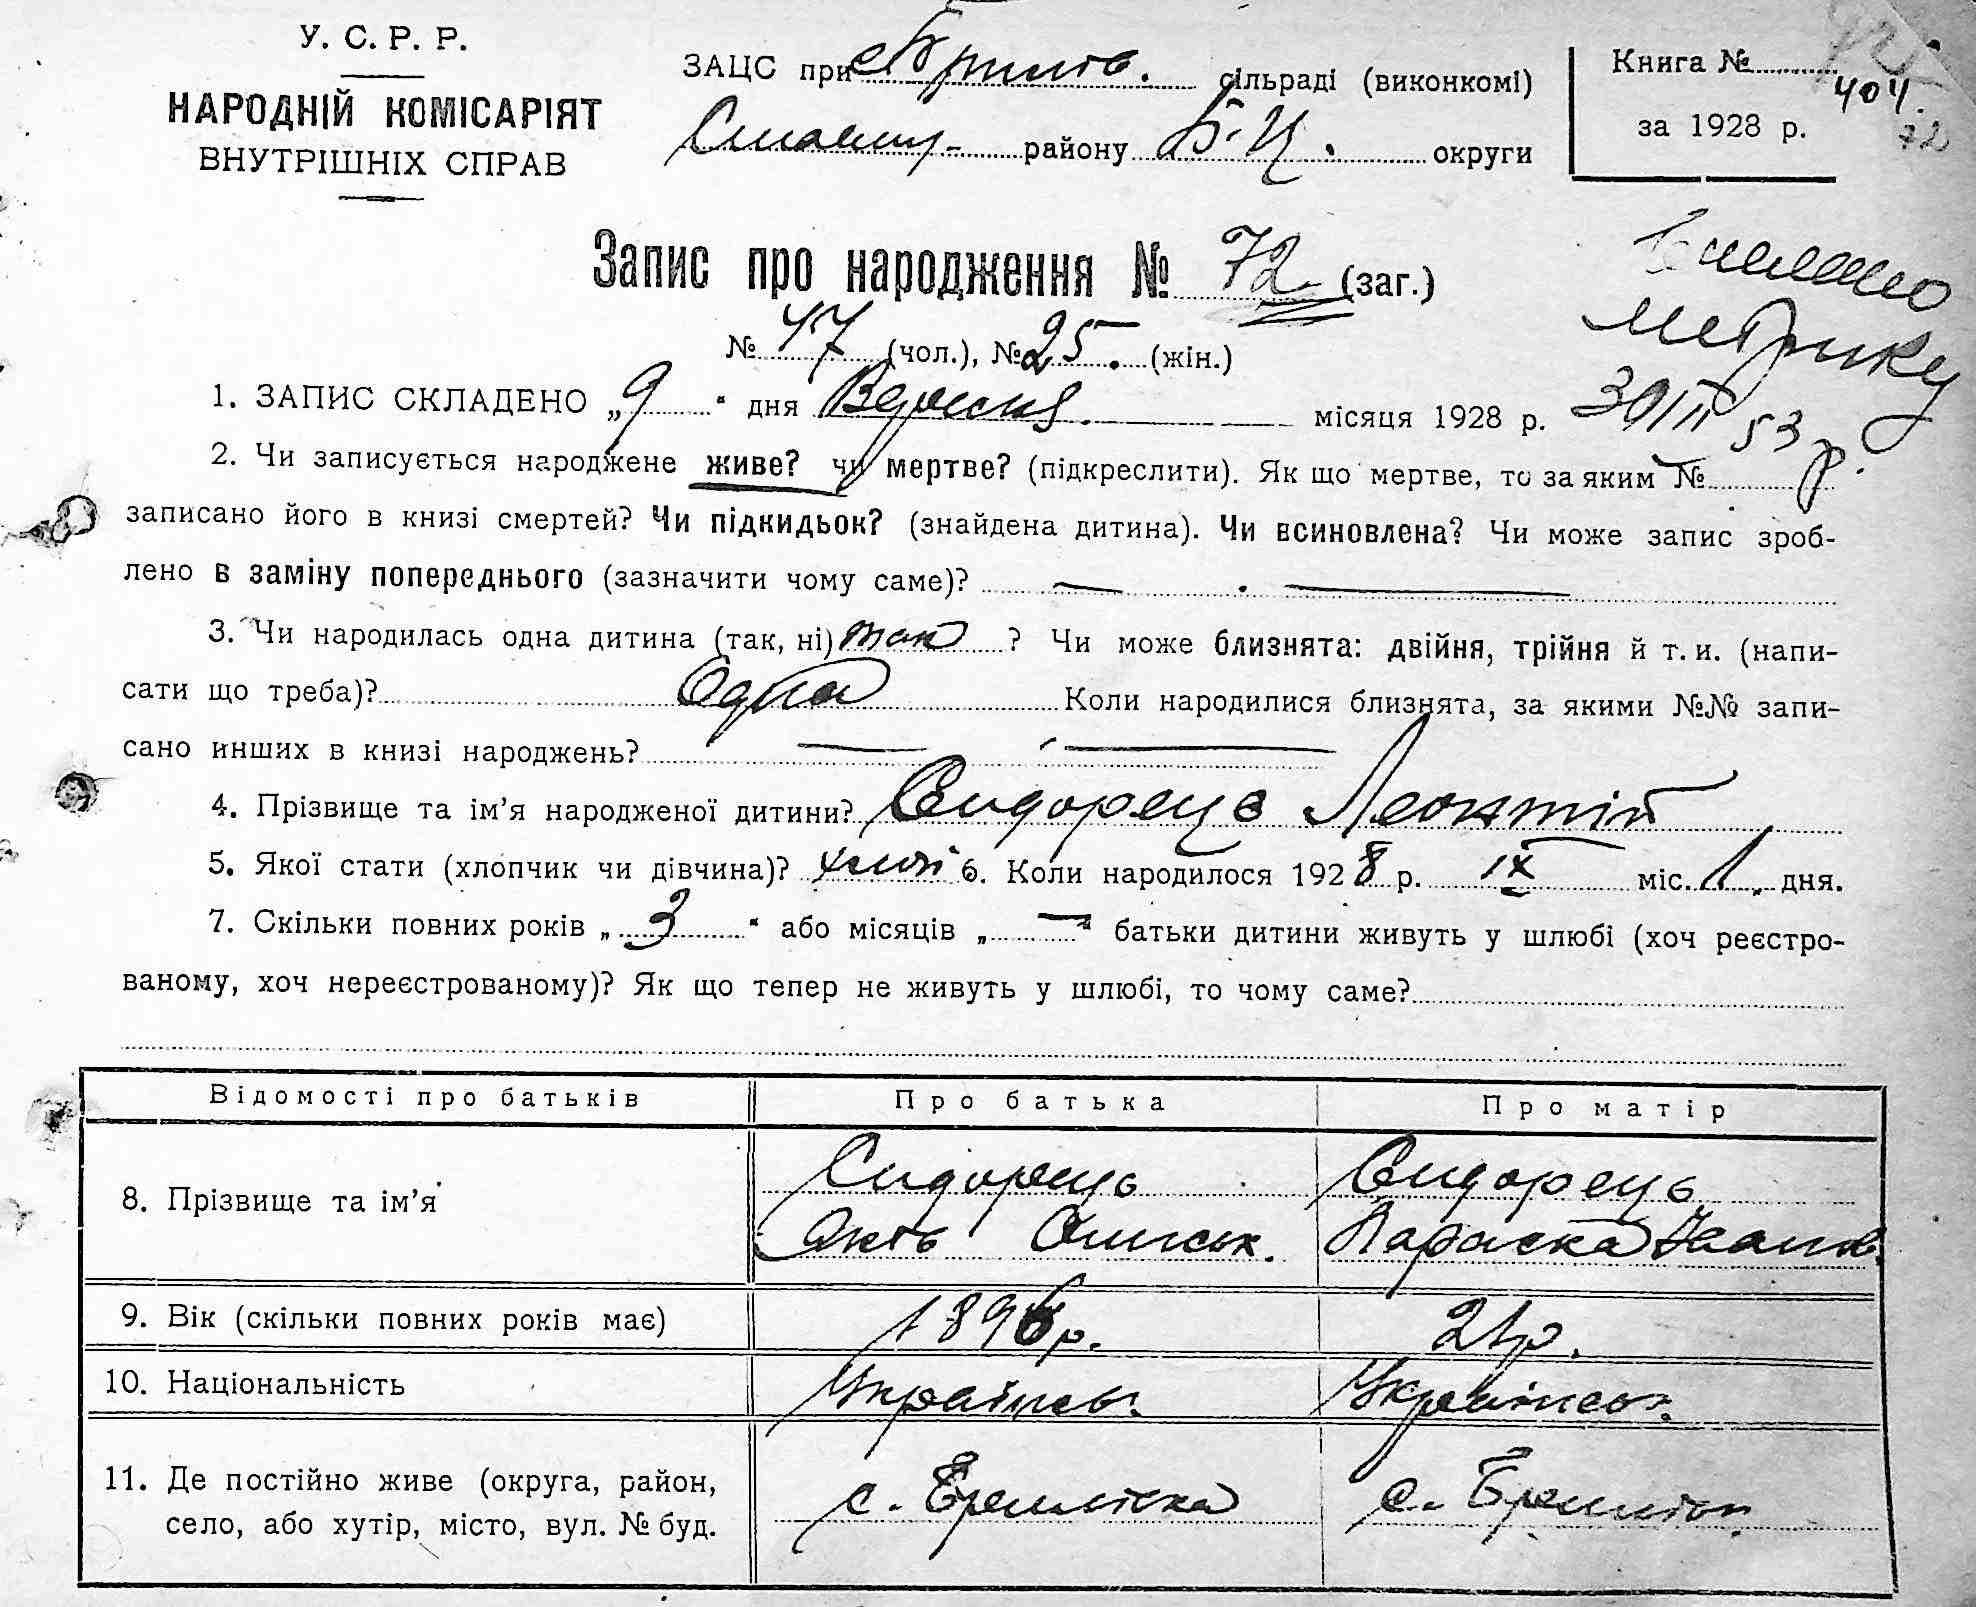 У. С. Р. Р.
НАРОДНІЙ КОМІСАРІЯТ
ВНУТРІШНІХ СПРАВ
ЗАЦС при сільраді (виконкомі)
району Б-Ц. округи
Книга №
404.
за 1928 р.
72
Запис про народження № 72 (заг.)
№ 47 (чол.), № 25. (жін.)
метрику
53 р.
1. ЗАПИС СКЛАДЕНО „9“ дня Вересня місяця 1928 р.
2. Чи записується народжене живе? чи мертве? (підкреслити). Як що мертве, то за яким №
записано його в книзі смертей? Чи підкидьок? (знайдена дитина). Чи всиновлена? Чи може запис зроб-
лено в заміну попереднього (зазначити чому саме)? — . —
3. Чи народилась одна дитина (так, ні) так ? Чи може близнята: двійня, трійня й т. и. (напи-
сати що треба)? Одна Коли народилися близнята, за якими №№ запи-
сано инших в книзі народжень? — —
4. Прізвище та ім'я народженої дитини? Сидорець Леонтій
5. Якої стати (хлопчик чи дівчина)? хлоп 6. Коли народилося 1928 р. IX міс. 1. дня.
7. Скільки повних років „3“ або місяців „—“ батьки дитини живуть у шлюбі (хоч реєстро-
ваному, хоч нереєстрованому)? Як що тепер не живуть у шлюбі, то чому саме?
Відомості про батьків Про батька Про матір
8. Прізвище та ім'я Сидорець Сидорець
Параска Іванів.
9. Вік (скільки повних років має) 1896 р. 21 р.
10. Національність Українськ. Українськ.
11. Де постійно живе (округа, район,
село, або хутір, місто, вул. № буд.